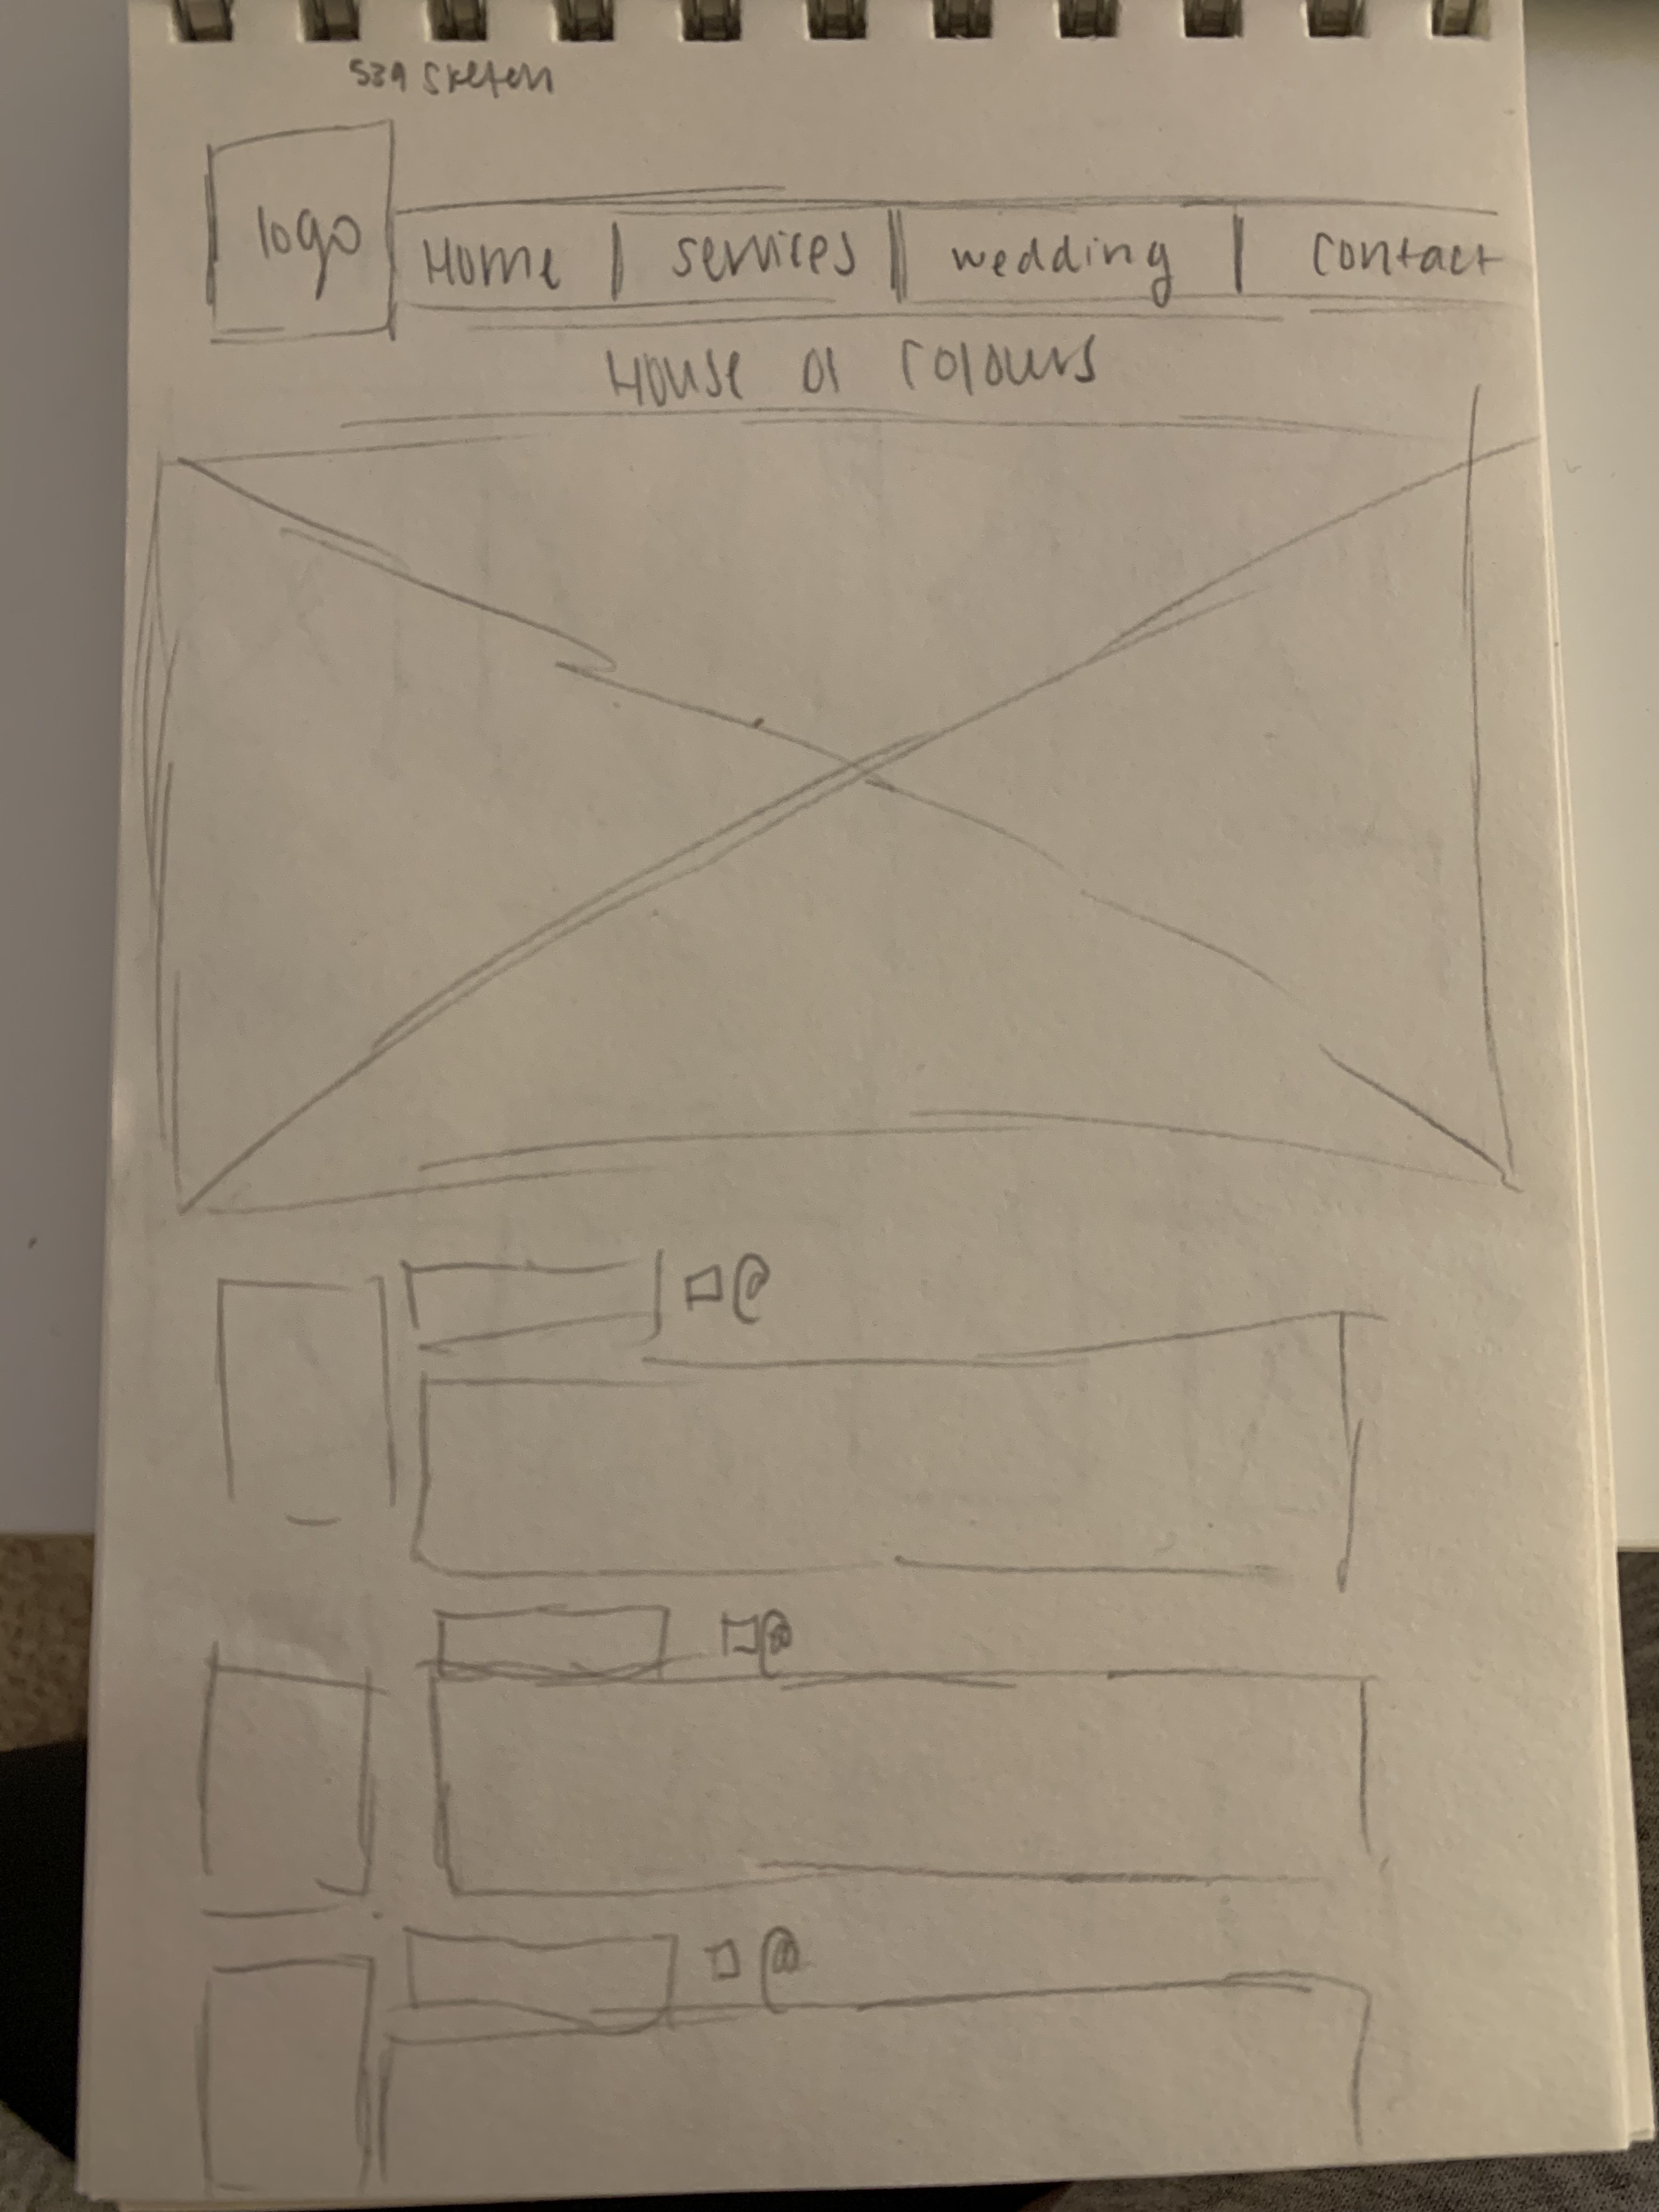 sketch
logo
Home | services | wedding | contact
House of colours
@
@
@